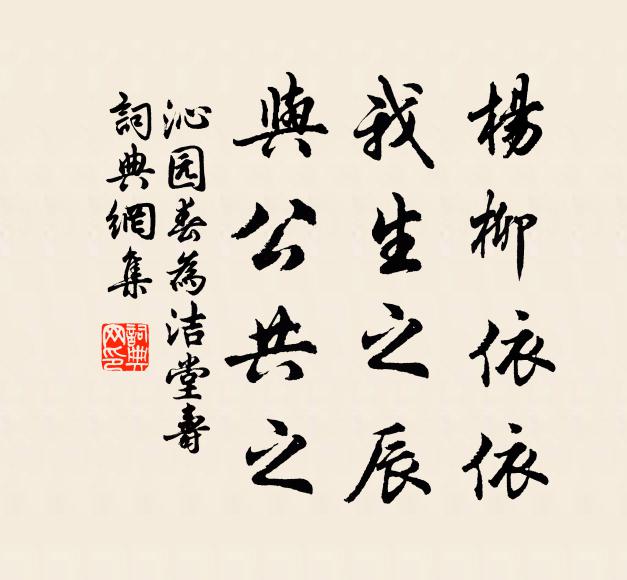 楊柳依依
我生之辰
與公共之
沁园春為洁堂壽
詞典網集
詞典网印